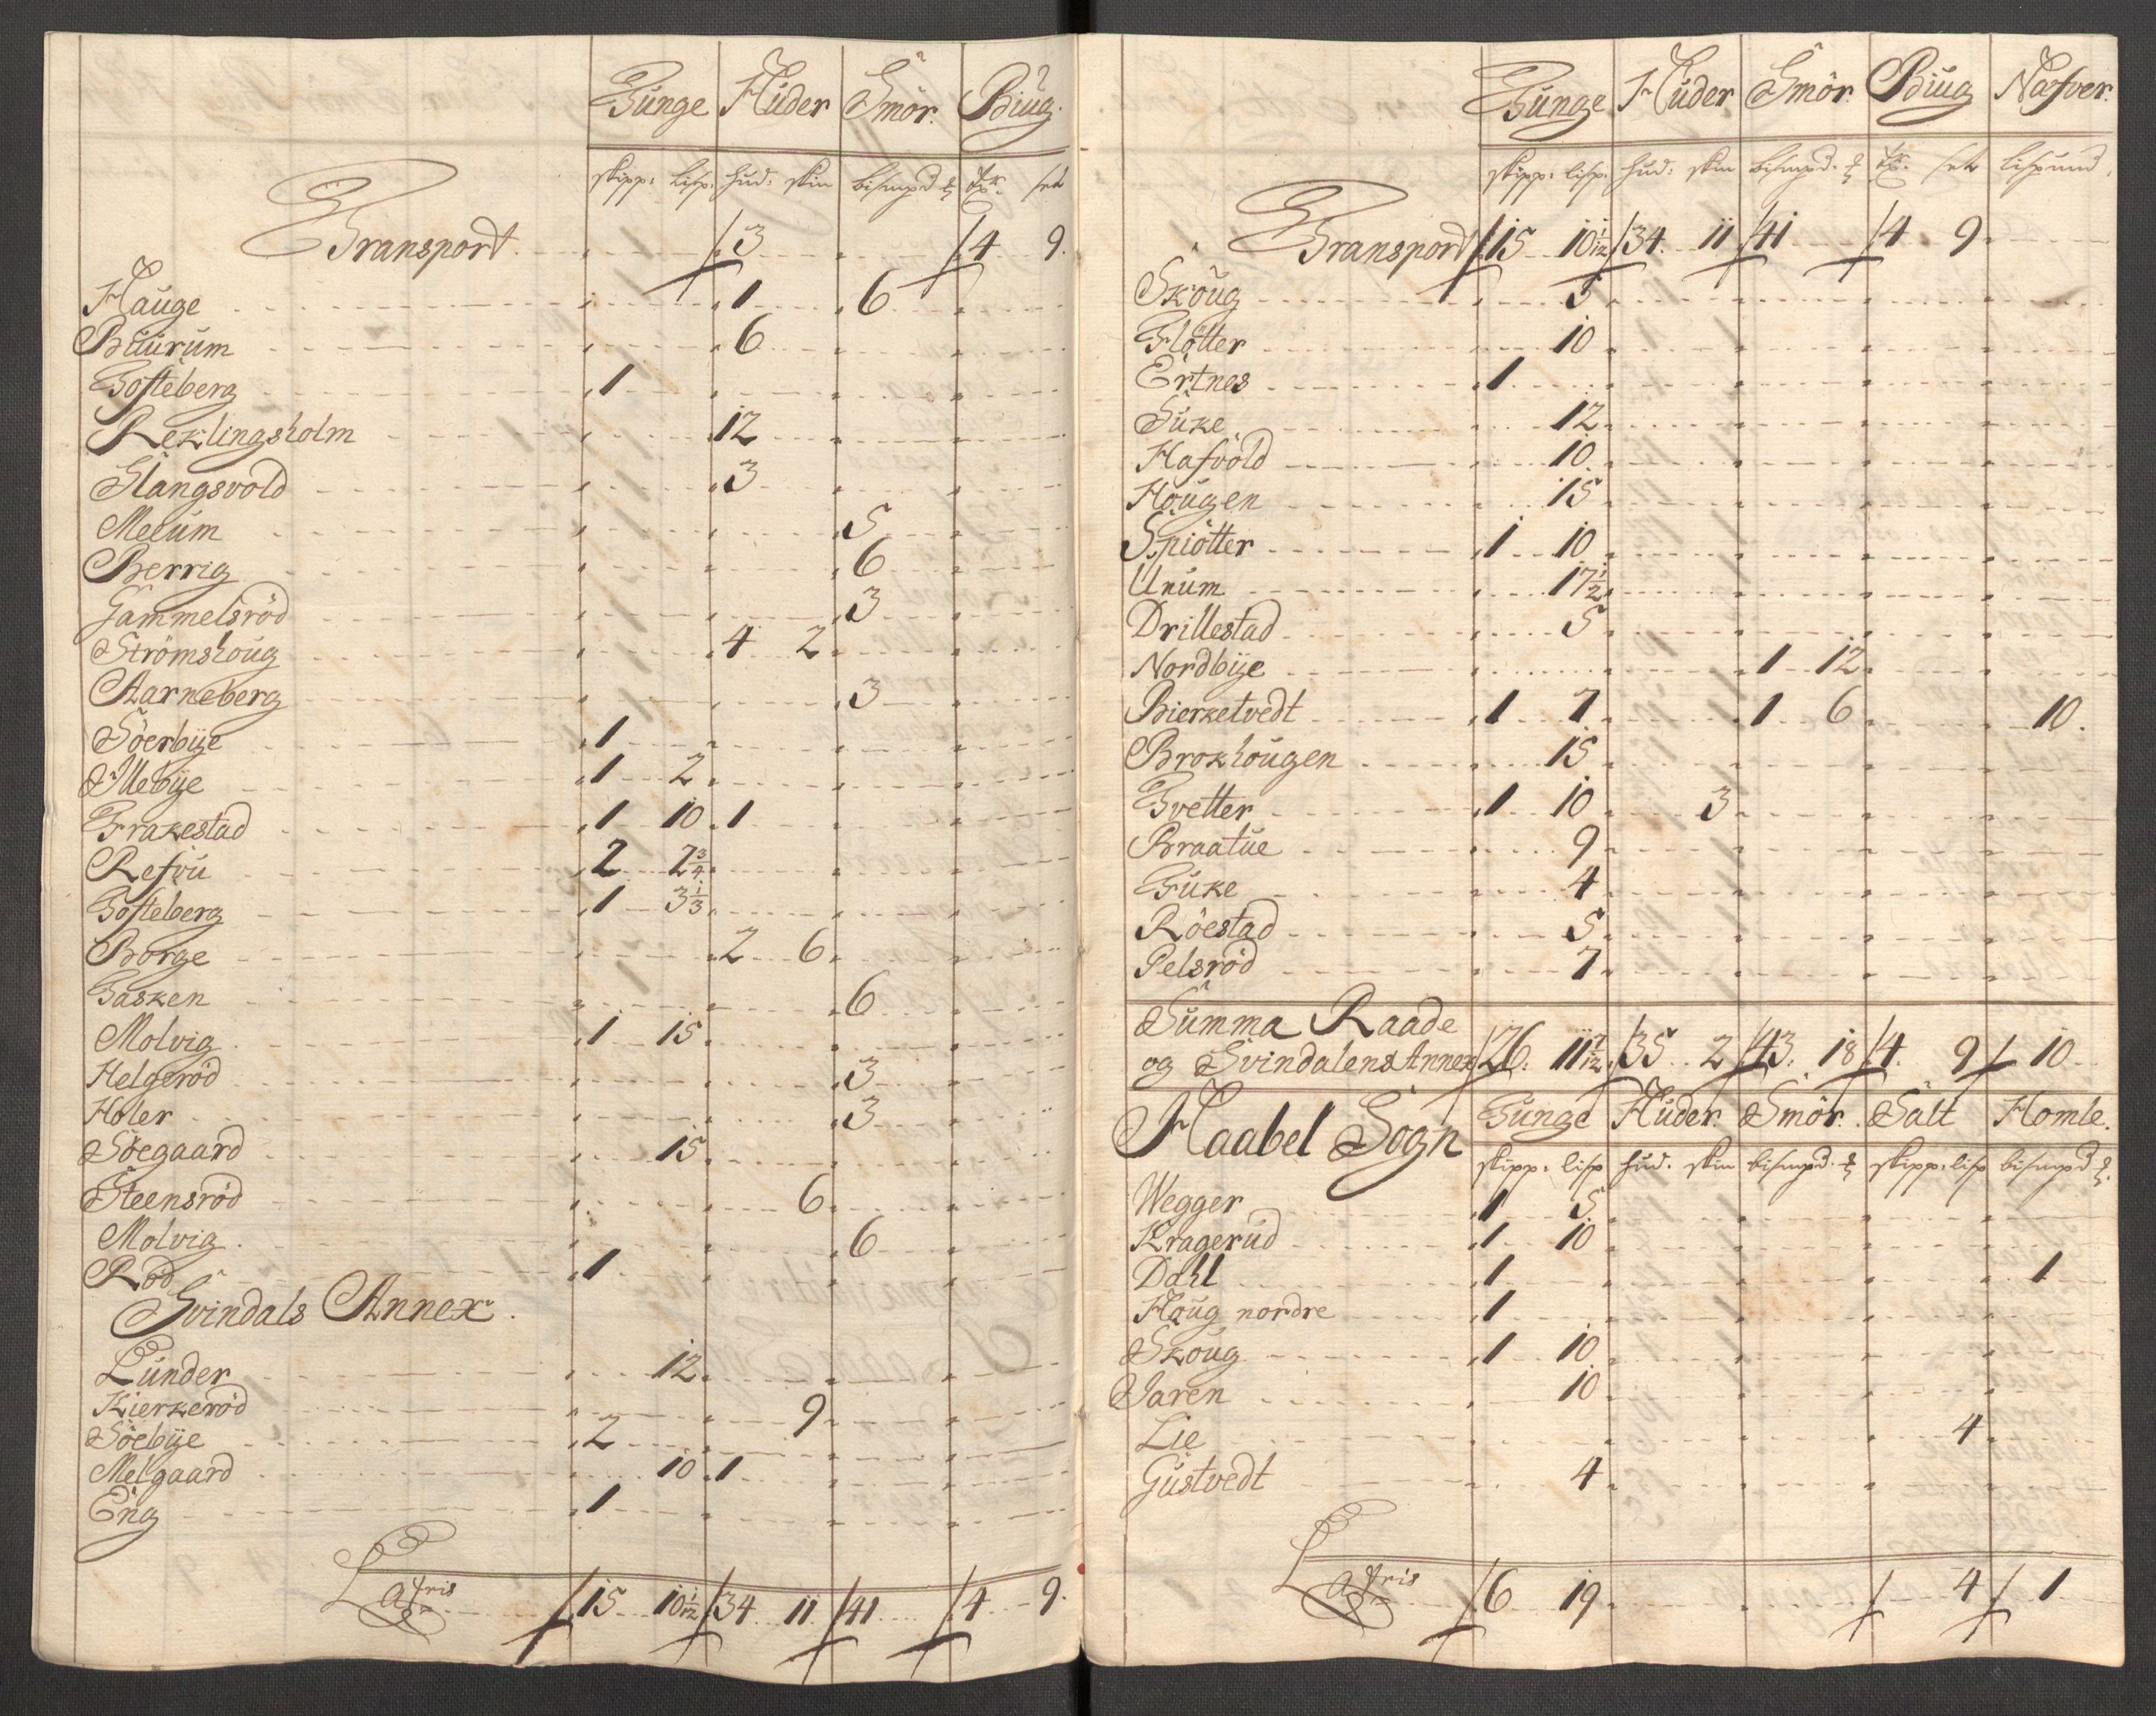 Tunge Huder Smör. Biug.
skipp: lisp: hud: skin bismpd. tr. set
Transport. 3 4 9.
Hauge 1 6
Buurum 6
Tofteberg 1
Reklingsholm 12
Slangsvold 3
Meeum 5
Berrig 6
Gammelsröd 3
Strömshoug 4 2
Aarneberg 3
Söerbÿe 1
Illebÿe 1 2
Frakestad 1 10 1
Refsu 2 2 3/4
Tofteberg 1 3 1/3
Borge 2 6
Tasken 6
Molvig 1 15
Helgeröd 3
Holer 3
Söegaard 15
Steensröd 6
Molvig 6
Röd 1
Svindals Annex.
Lunder 12
Kierkeröd 9
Söebÿe 2
Melgaard 10 1
Eng 1
Latris 15 10 1/12 34 11 41 4 9.
Tunge Huder Smör Biug Nafver.
skipp: lisp: hud: skin bismpd. tr. set lispund.
Transport 15 10 1/12 34. 11 41 4 9
Skoug 5
Flötter 10
Ertnes 1
Suke 12
Hafvold 10
Hougen 15
Spiötter 1 10
Unum 17 1/2
Drillestad 5
Nordbÿe 1 12
Bierketvedt 1 7 1 6 10.
Brokhougen 15
Tvetter 1 10 3
Braatue 9
Fuke 4
Röestad 5
Pelsröd 7
Summa Raade
og Svindalens Annex 26. 11 7/12 35 2 43. 18 4. 9 10
Haabel Sogn Tunge Huder. Smör. Salt Homle.
skipp: lisp hud. skin bismpd. skipp: lisp bismpd
Wegger 1 5
Kragerud 1 10
Dahl 1 1
Houg nordre 1
Skoug 1 10
Jaren 10
Lie 4
Gustvedt 4
Latris 6 19 4 1